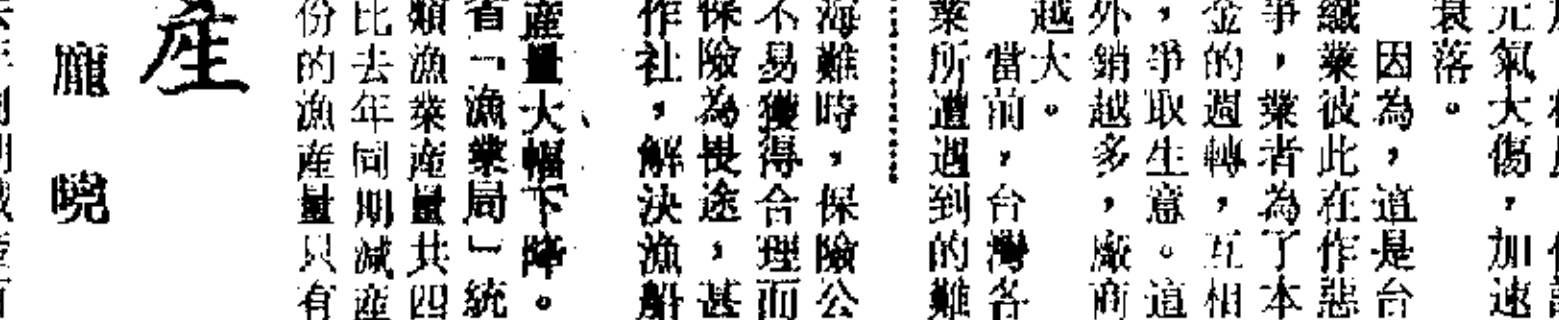 元氣大傷，加速
衰落。
因為，這是台
纖業彼此在作惡
爭，業者為了本
金的週轉，互相
，爭取生意。這
外銷越多，廠商
越大。
當前，台灣各
業所遭遇到的難
海難時，保險公
不易獲得合理而
保險為畏途，甚
作社，解決漁船
產量大幅下降。
省「漁業局」統
類漁業產量共四
比去年同期減產
份的漁產量只有
產
龐曉